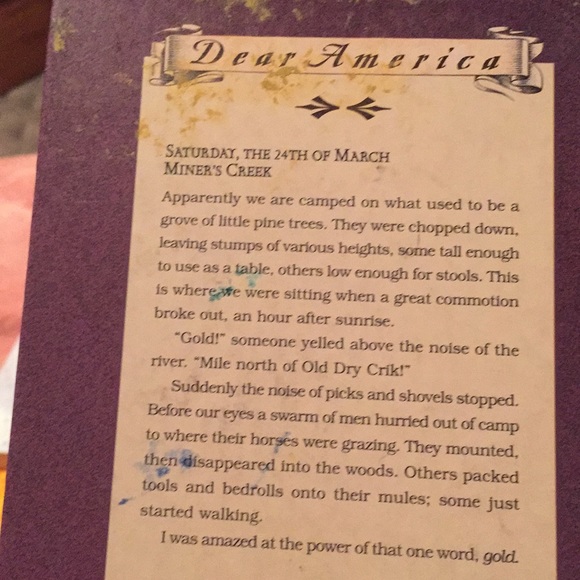 Dear America
SATURDAY, THE 24TH OF MARCH
MINER'S CREEK
Apparently we are camped on what used to be a
grove of little pine trees. They were chopped down,
leaving stumps of various heights, some tall enough
to use as a table, others low enough for stools. This
is where we were sitting when a great commotion
broke out, an hour after sunrise.
"Gold!" someone yelled above the noise of the
river. "Mile north of Old Dry Crik!"
Suddenly the noise of picks and shovels stopped.
Before our eyes a swarm of men hurried out of camp
to where their horses were grazing. They mounted,
then disappeared into the woods. Others packed
tools and bedrolls onto their mules; some just
started walking.
I was amazed at the power of that one word, gold.